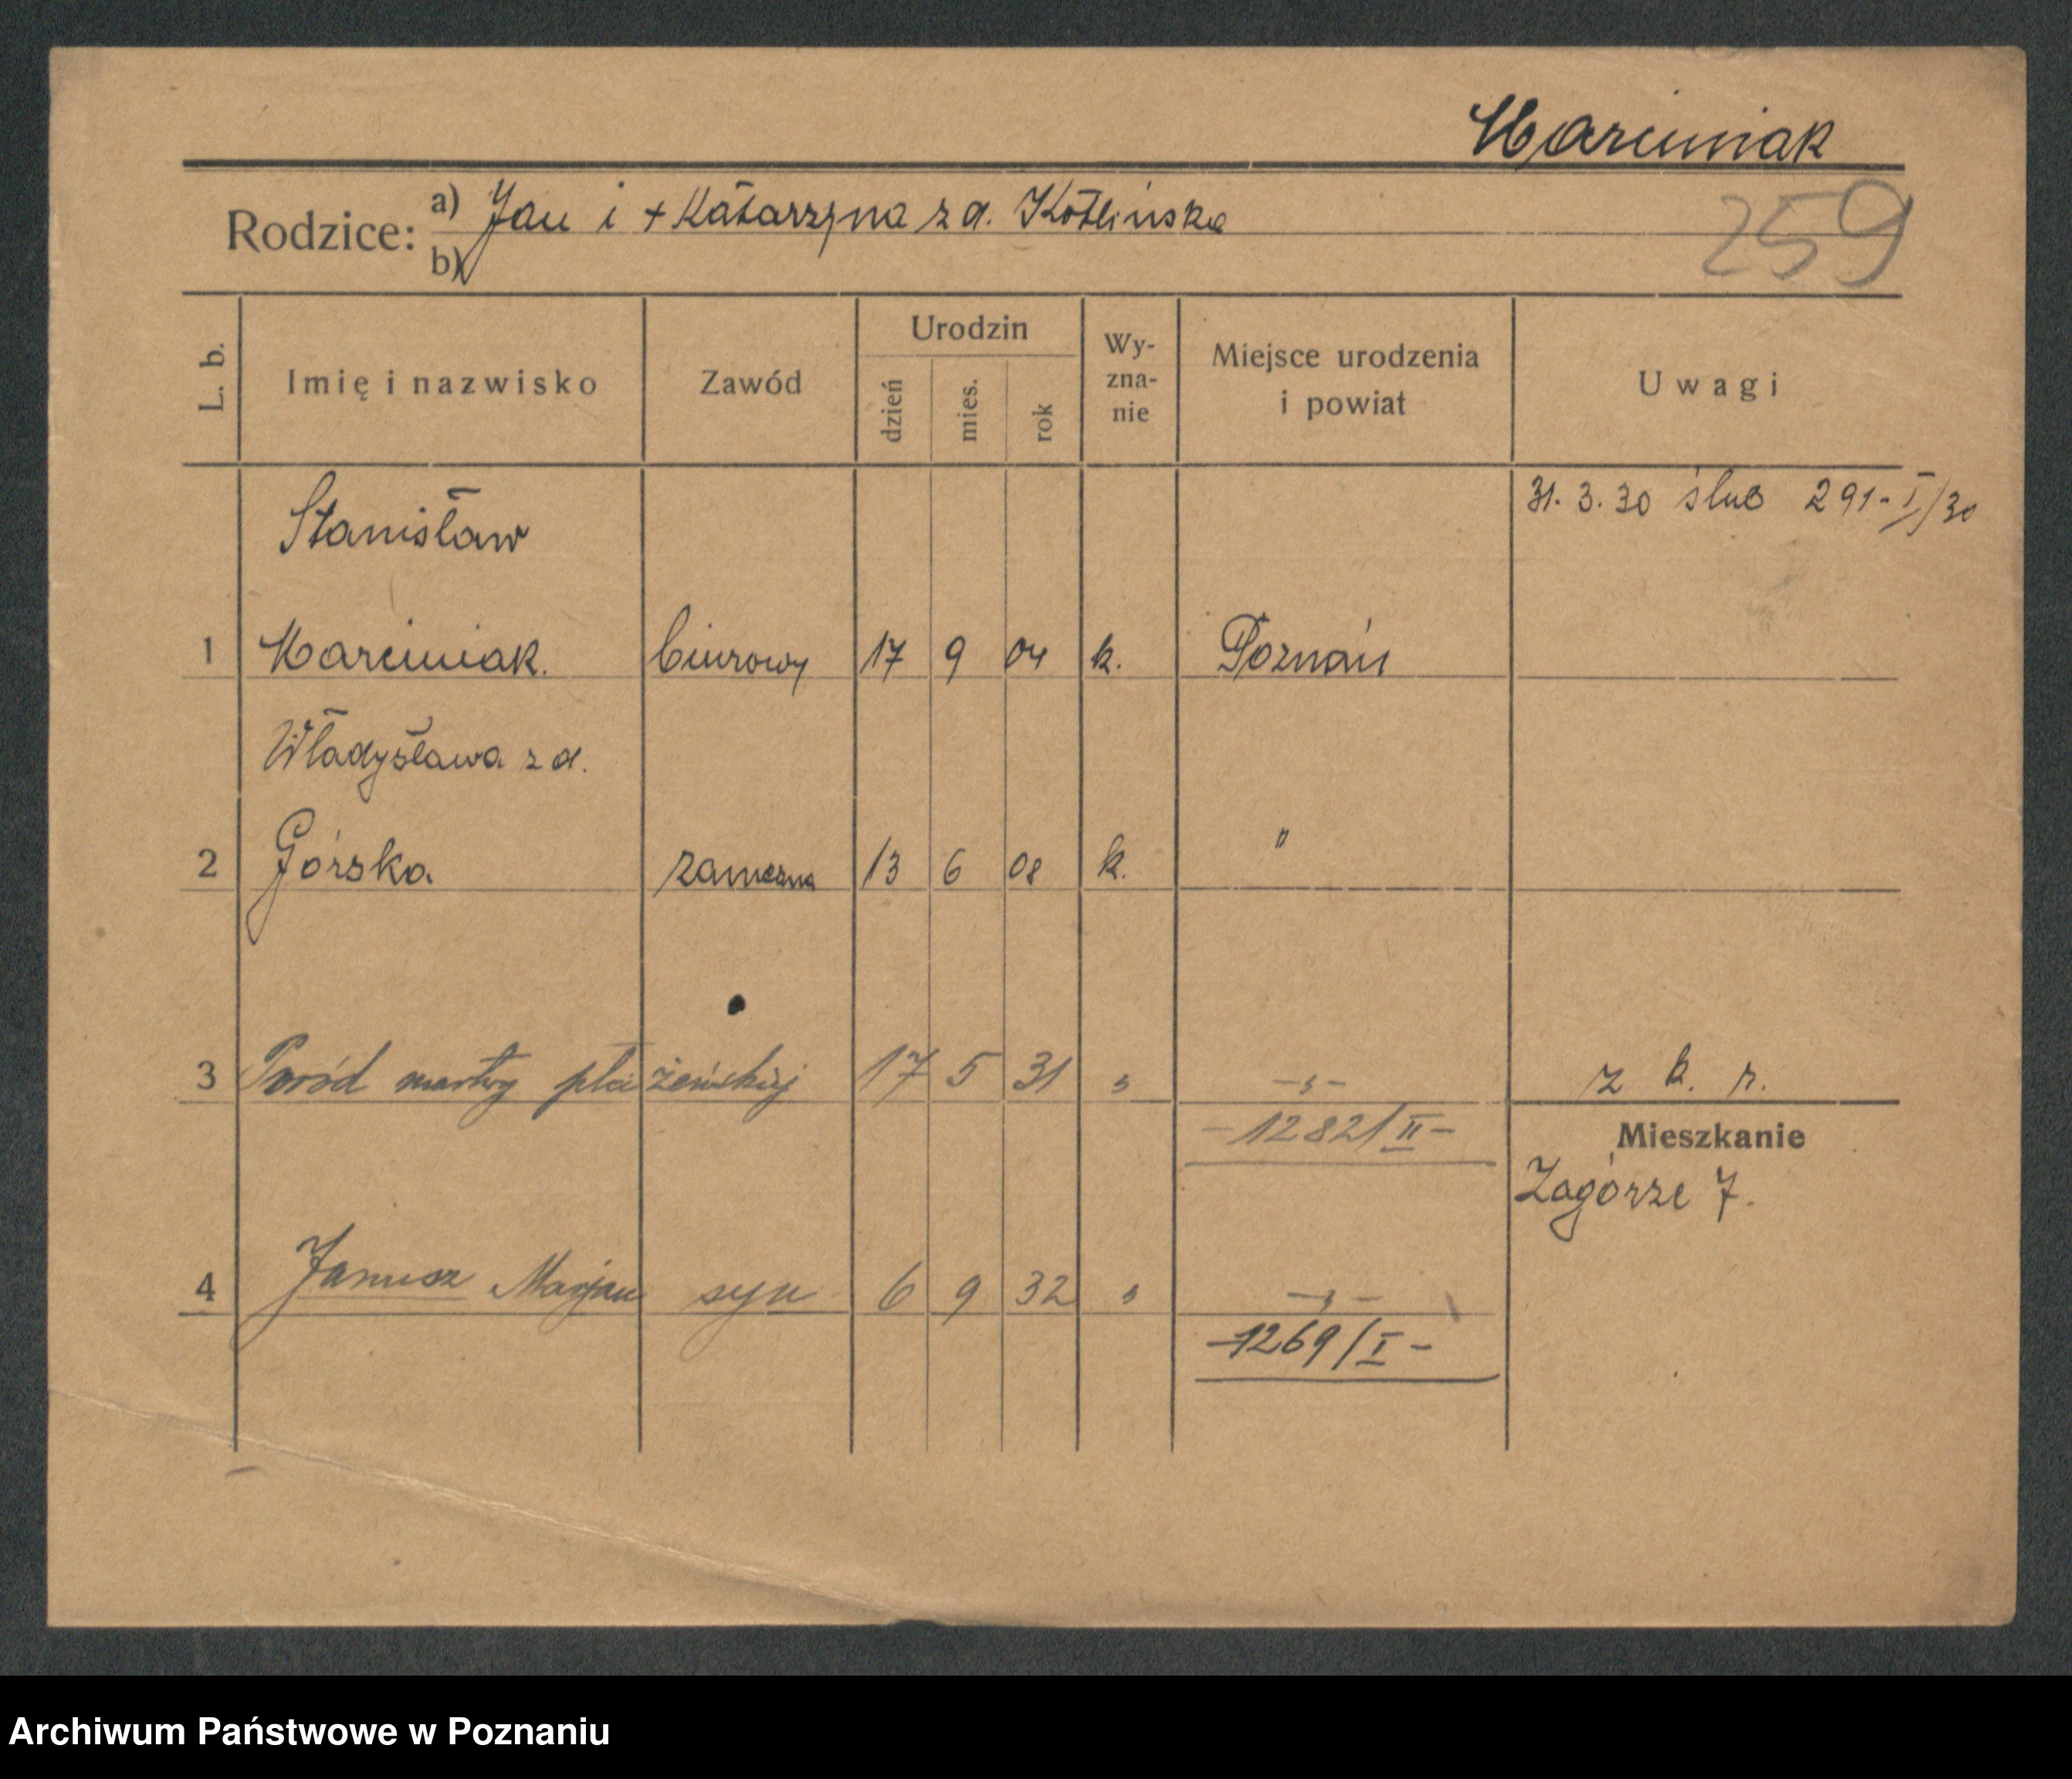 Marciniak
Rodzice: a) Jan i + Katarzyna z d. Kotlińska
b)
259
L. b. Imię i nazwisko Zawód Urodzin dzień mies. rok Wy-zna-nie Miejsce urodzenia i powiat Uwagi
Stanisław 31. 3. 30 ślub 291-I/30
1 Marciniak. biurowy 17 9 04 k. Poznań
Władysława z d.
2 Górska zamężna 13 6 08 k. "
3 Poród martwy płci żeńskiej 17 5 31 " -"- z k. r.
-1282/II-
Mieszkanie
Zagórze 7.
4 Janusz Marjan syn 6 9 32 " -"-
-1269/I-
Archiwum Państwowe w Poznaniu